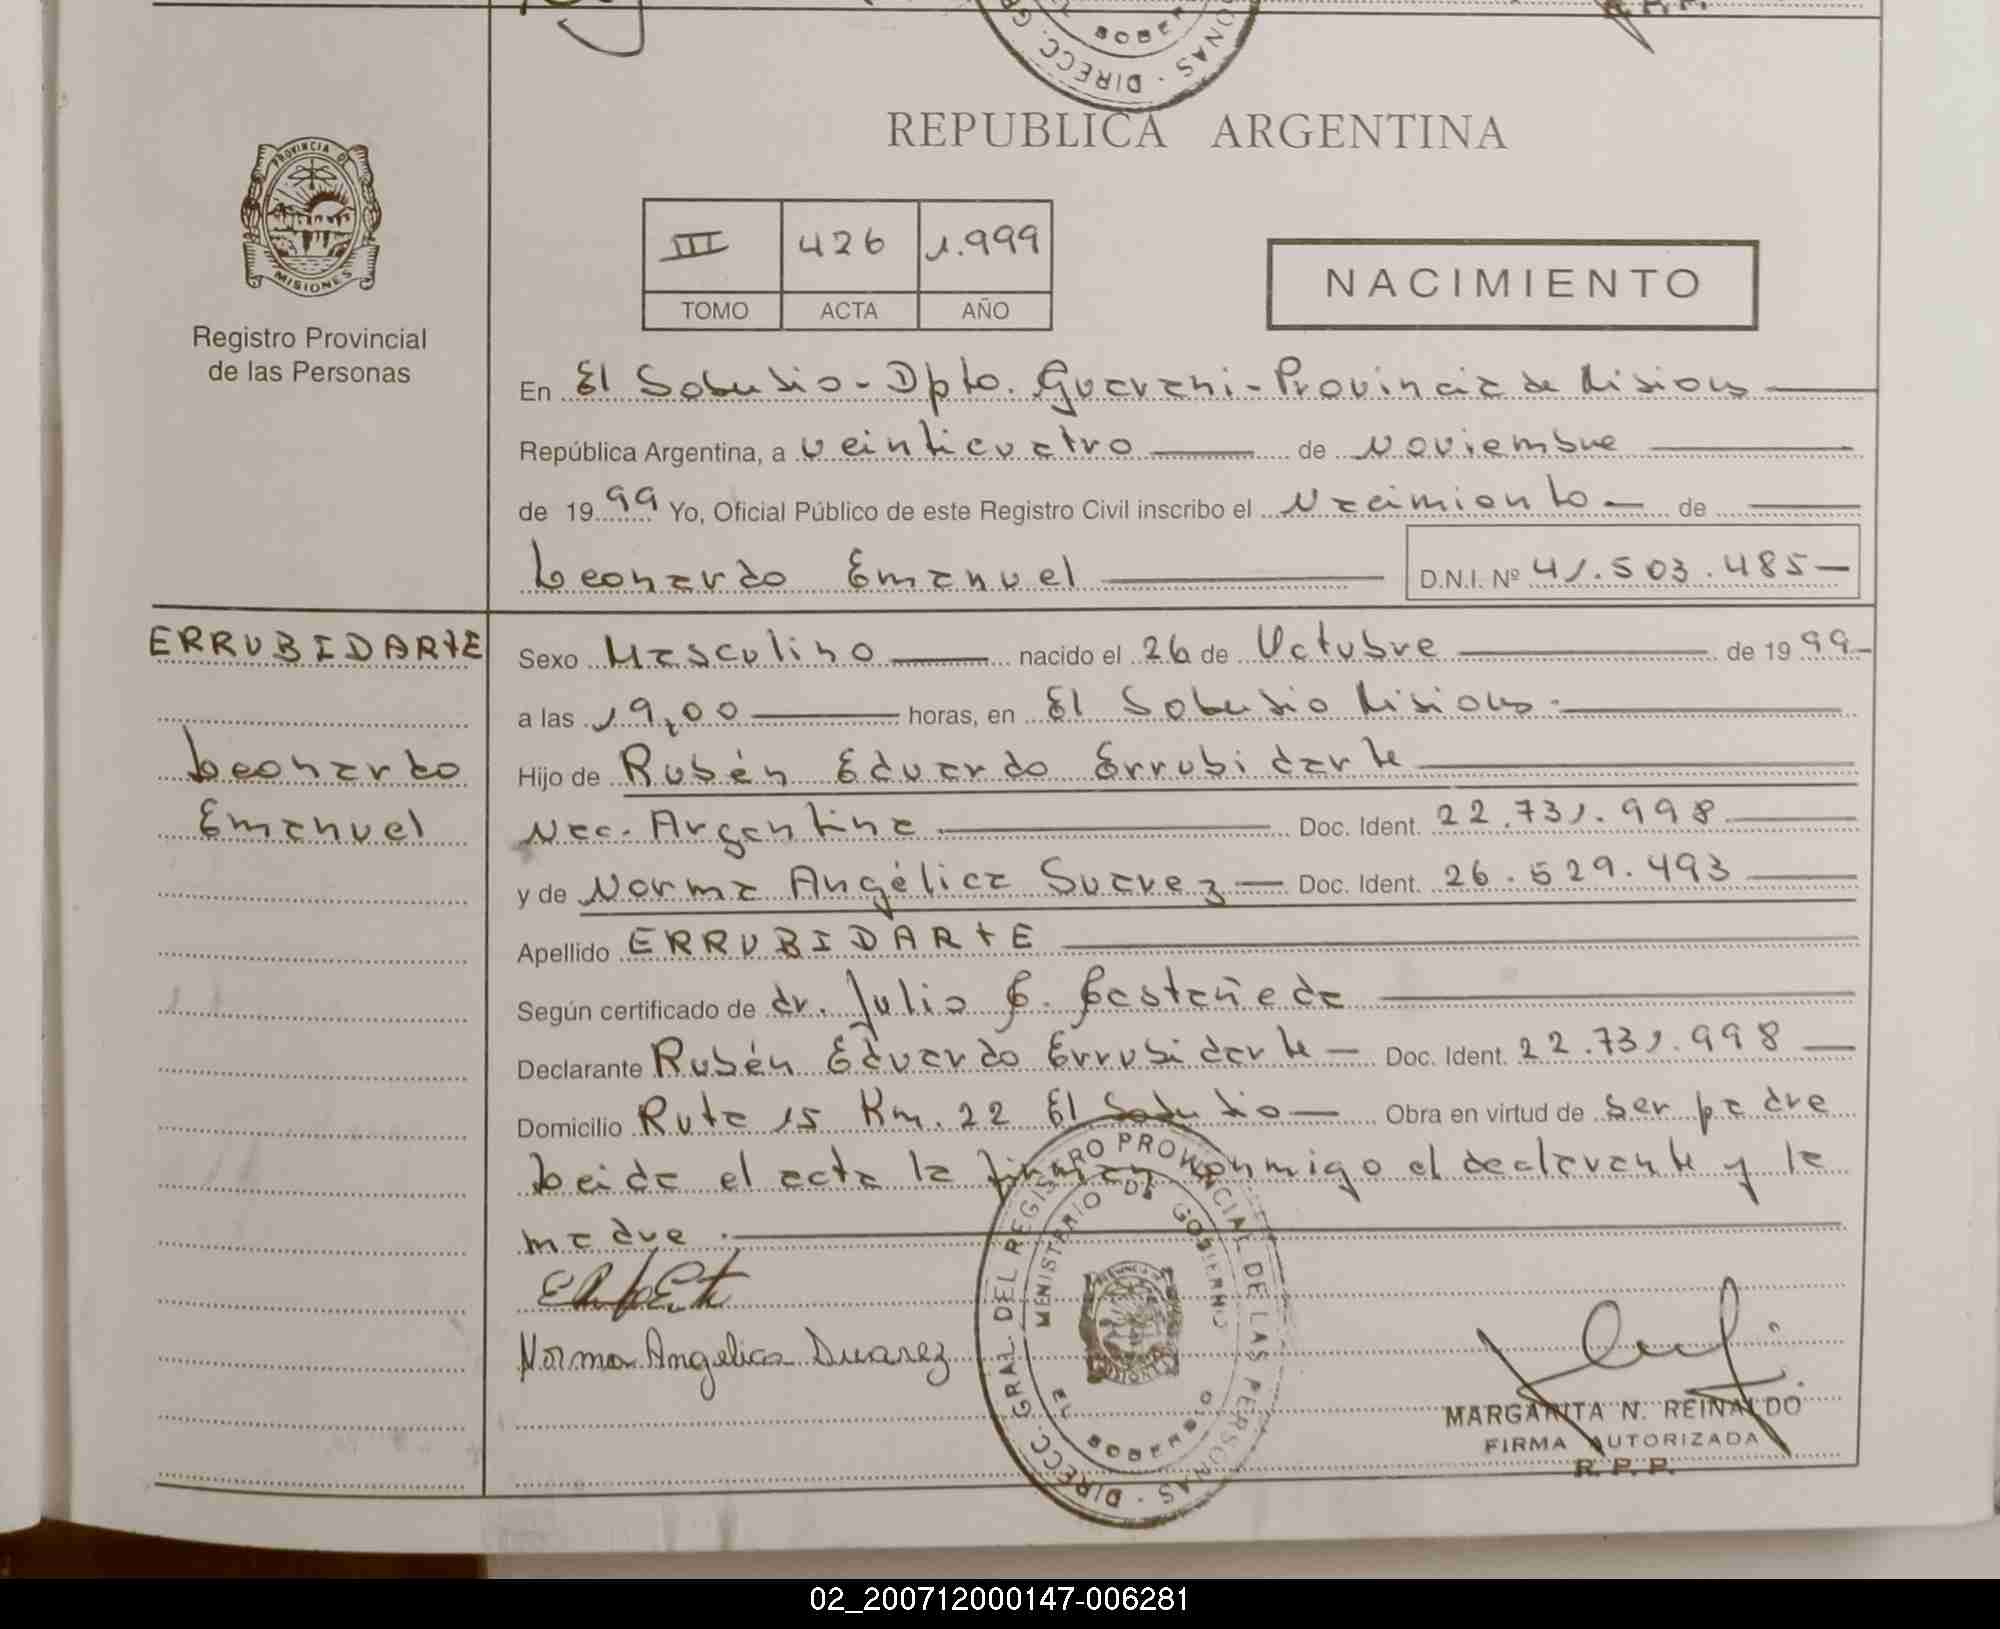 SOBER
DIRECC. GR
ONAS
R. P. P.
PROVINCIA DE
MISIONES
Registro Provincial
de las Personas
REPUBLICA ARGENTINA
III 426 1.999
TOMO ACTA AÑO
NACIMIENTO
En El Soberbio - Dpto. Guarani - Provincia de Misiones
República Argentina, a veinticuatro de Noviembre
de 1999 Yo, Oficial Público de este Registro Civil inscribo el Nacimiento de
Leonardo Emanuel D.N.I. Nº 41.503.485
ERRUBIDARTE
Leonardo
Emanuel
Sexo Masculino nacido el 26 de Octubre de 1999
a las 19,00 horas, en El Soberbio Misiones.
Hijo de Rubén Eduardo Errubidarte
Nac. Argentina Doc. Ident. 22.731.998
y de Norma Angélica Suarez Doc. Ident. 26.529.493
Apellido ERRUBIDARTE
Según certificado de dr. Julio C. Castañeda
Declarante Rubén Eduardo Errubidarte Doc. Ident. 22.731.998
Domicilio Ruta 15 Km. 22 El Soberbio Obra en virtud de ser padre
Leida el acta la firman conmigo el declarante y la
madre.
Norma Angelica Suarez
DIRECC. GRAL DEL REGISTRO PROVINCIAL DE LAS PERSONAS
MINISTERIO DE GOBIERNO
EL SOBERBIO
MISIONES
MARGARITA N. REINALDO
FIRMA AUTORIZADA
R. P. P.
02_200712000147-006281